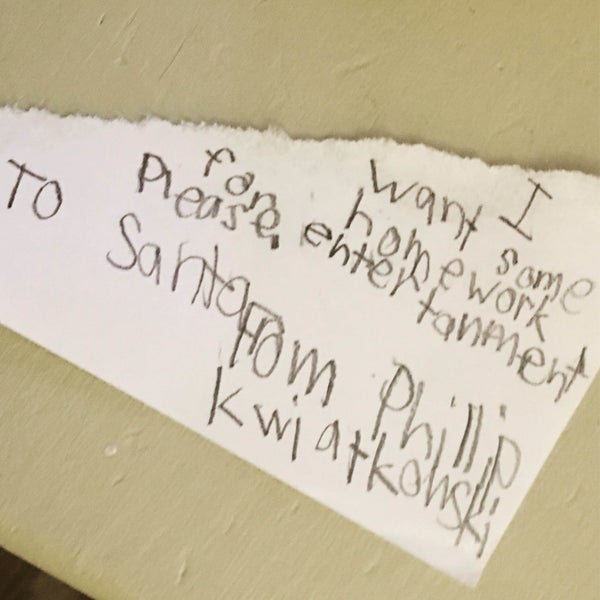 TO Santa
I want some
homework
fore entertanment
Please.
From Phillip
Kwiatkowski